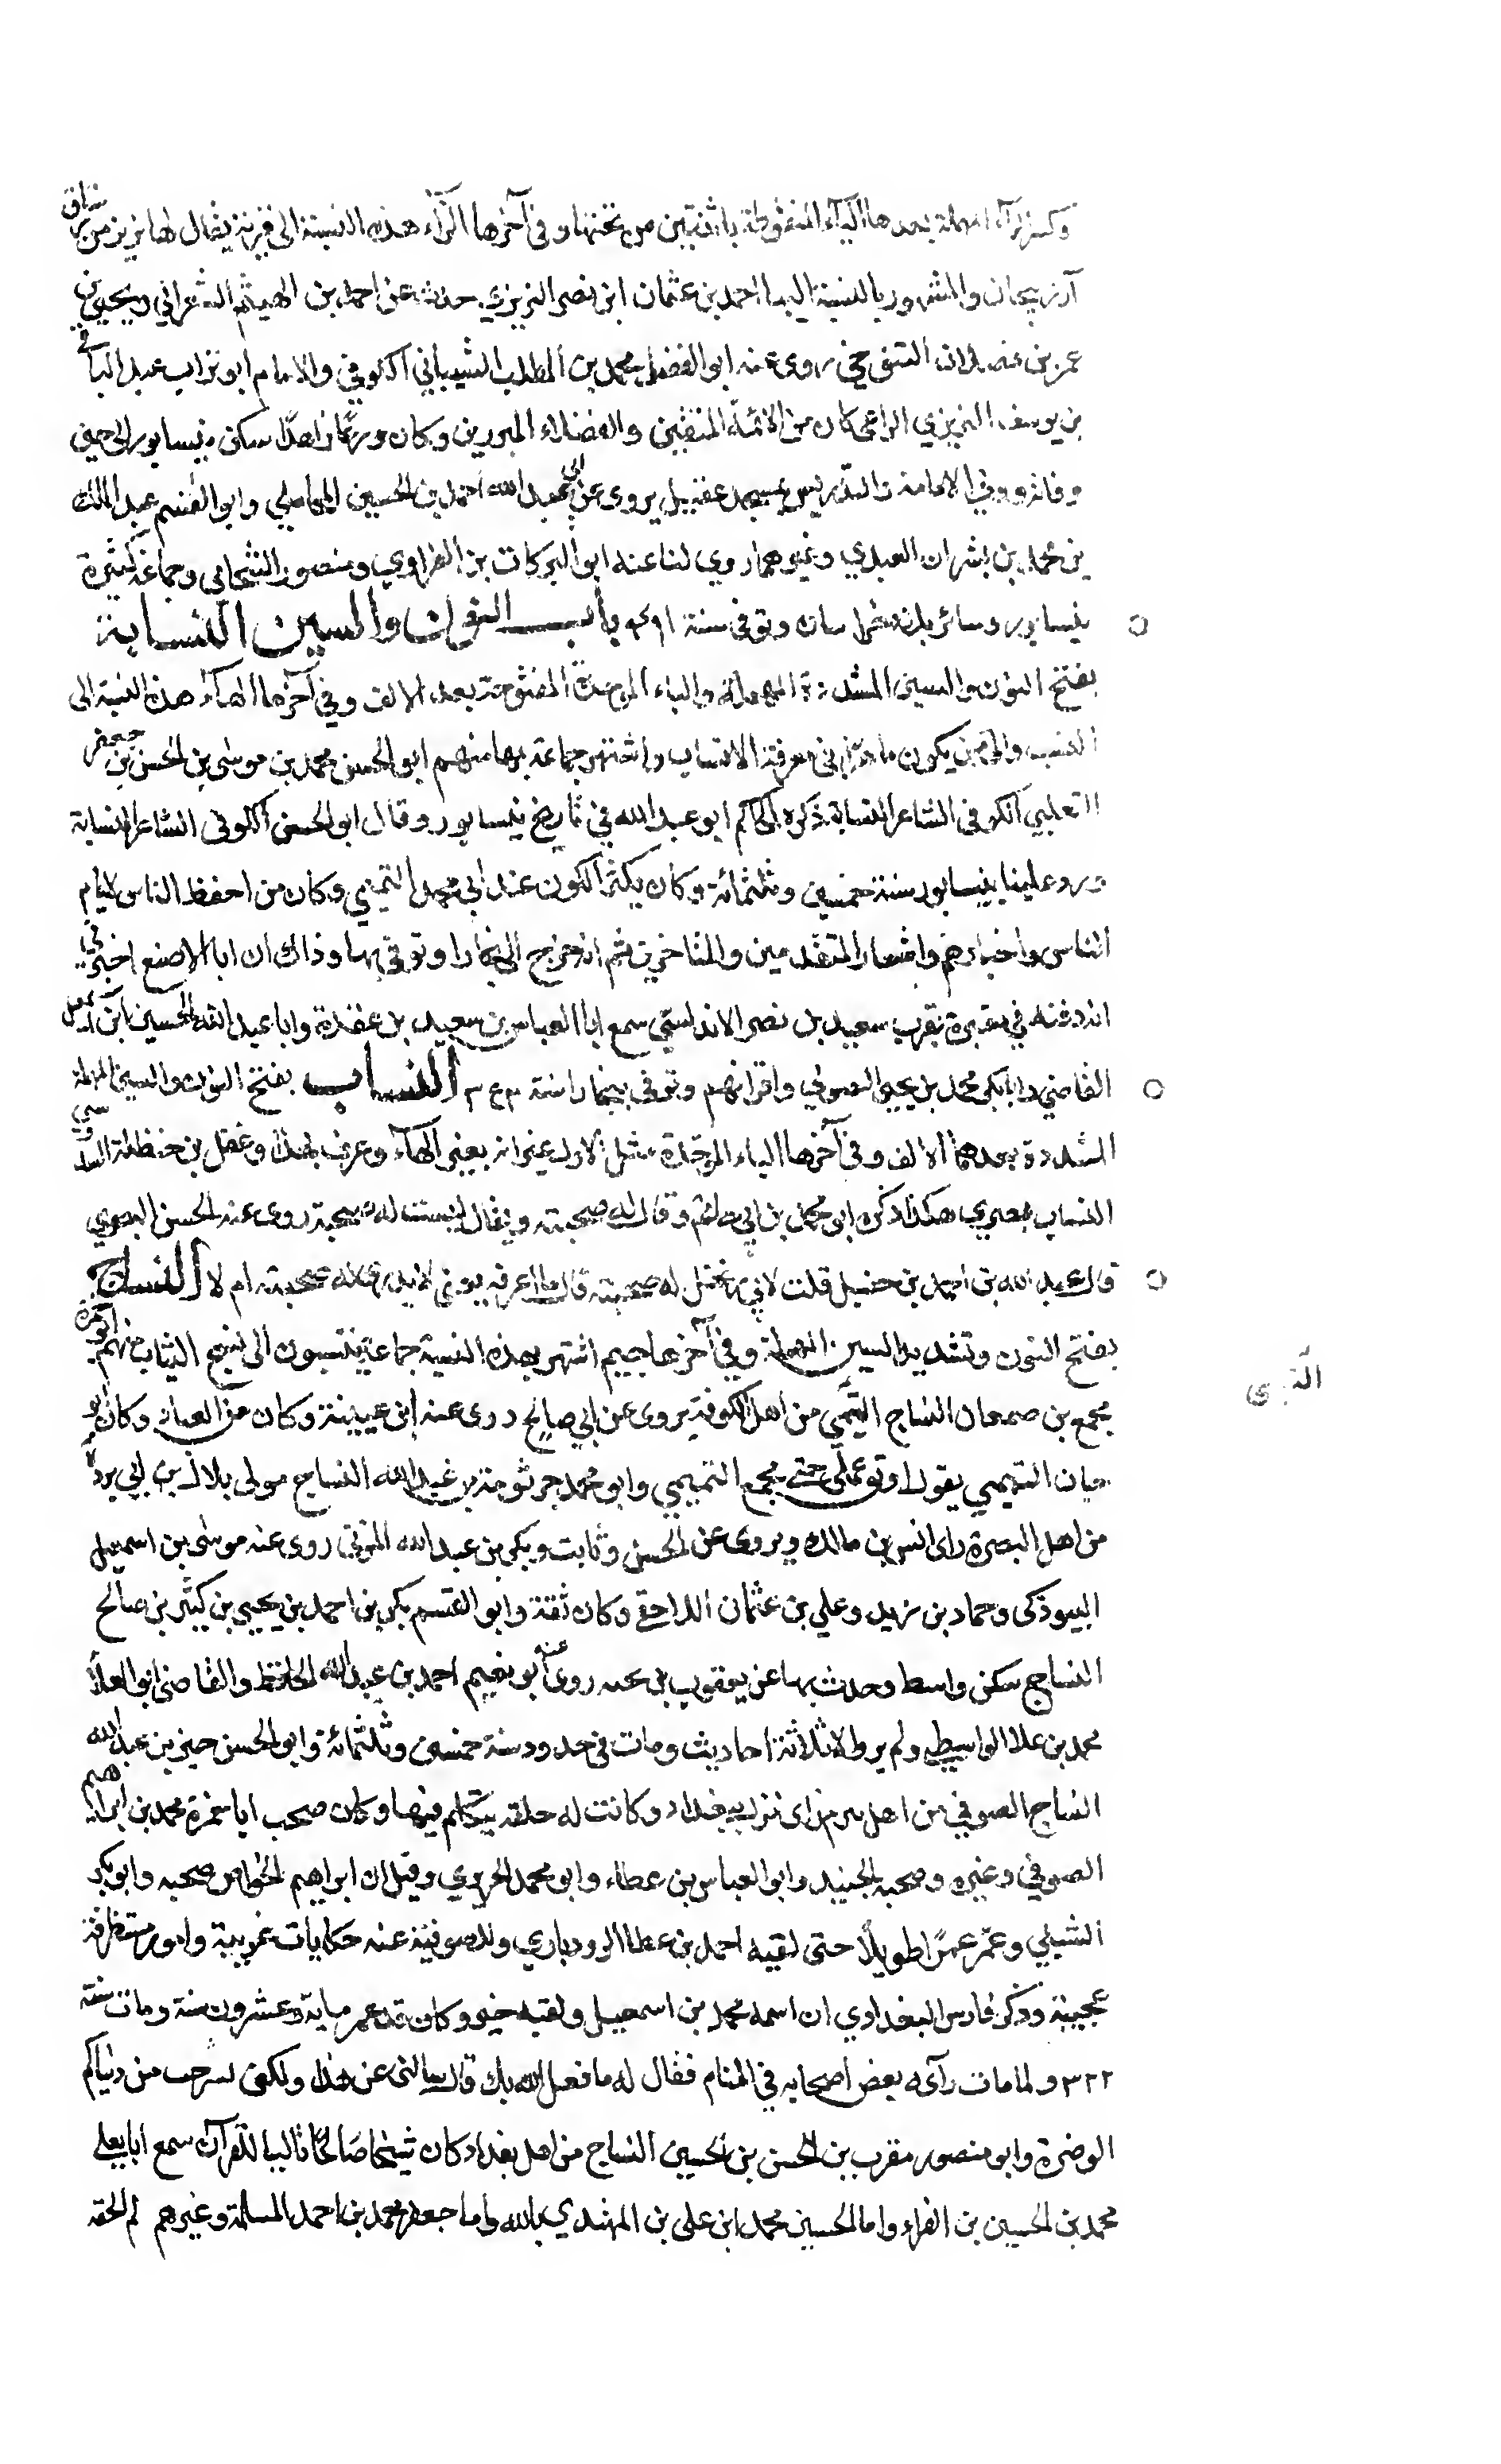 وكسر الراء المهملة بعدها الياء المنقوطة باثنتين من تحتها وفي آخرها الزاء هذه النسبة الى قرية يقال لها نريز من
آذربيجان والمشهور بالنسبة اليها احمد بن عثمان ابن نصر النريزي حدث عن احمد بن الهيثم الشعراني ويحيى بن
عمر بن التنوخي روى عنه ابو الفضل محمد بن المطلب الشيباني الكوفي والامام ابو تراب عبد الباقي
بن يوسف النريزي المراغي كان من الائمة المتقنين والفضلاء المبرزين وكان ورعا زاهدا سكن نيسابور الى حين
وفاته وولي الامامة والتدريس بمسجد عقيل يروى عن ابي عبد الله احمد بن الحسين المحاملي وابو القسم عبد الملك
بن محمد بن بشران العبدي وغيرهما روى لنا عنه ابو البركات بن الفراوي ومنصور الشحامي وجماعة كثيرة
بنيسابور وسائر بلاد وتوفى سنة ٤٩١ باب النون والسين النسابة
بفتح النون والسين المشددة المهملة والباء الموحدة المفتوحة بعد الالف وفي آخرها الهاء هذه النسبة الى
النسب والى من يكون ماهرا في معرفة الانساب واشتهر جماعة بها منهم ابو الحسن محمد بن موسى بن الحسن بن جعفر
التعلبي الكوفى الشاعر النسابة ذكره الحاكم ابو عبد الله في تاريخ نيسابور وقال ابو الحسن الكوفى الشاعر النسابة
ورد علينا بنيسابور سنة خمسين وثلثمائة وكان يكثر الكون عند ابي محمد التميمي وكان من احفظ الناس لايام
الناس واخبارهم واشعار المتقدمين والمتاخرين ثم انه خرج الى بخارا وتوفي بها وذاك ان ابا الاصبع اخبرني
انه دفنه في مقبرة بقرب سعيد بن نصر الاندلسي سمع ابا العباس بن سعيد بن عقدة وابا عبد الله الحسين ابن اسمعيل
القاضي وابا بكر محمد بن يحيى الصولي واقرانهم وتوفى ببخارا سنة ٣٤٣ النساب بفتح النون والسين المهملة
المشددة بعدهما الالف وفي آخرها الباء الموحدة مثل الاول غير انه بغير الهاء وعرف بهذا دغفل بن حنظلة السدوسي
النساب بصري هكذا ذكره ابو محمد بن ابي حاتم وقال له صحبة ويقال ليست له صحبة روى عنه الحسن البصري
قال عبد الله بن احمد بن حنبل قلت لابي دغفل له صحبة قال ما اعرفه يعني لا يدرى له صحبة ام لا النساج
بفتح النون وتشديد السين المهملة وفي آخرها جيم اشتهر بهذه النسبة جماعة ينتسبون الى نسج الثياب منهم ابو حمزة
مجمع بن صمعان النساج التيمي من اهل الكوفة يروى عن ابي صالح روى عنه ابن عيينة وكان من العباد وكان ابو
حيان التيمي يقول اوثق عملي حبي مجمع التميمي وابو محمد جرثومة بن عبد الله النساج مولى بلال بن ابي بردة
من اهل البصرة راى انس بن مالك ويروى عن الحسن وثابت وبكر بن عبد الله المزني روى عنه موسى بن اسمعيل
التبوذكى وحماد بن زيد وعلي بن عثمان اللاحقي وكان ثقة وابو القسم بكر بن احمد بن يحيى بن كثير بن صالح
النساج سكن واسط وحدث بها عن يعقوب بن روى عنه ابو نعيم احمد بن عبد الله الحافظ والقاضي ابو العلا
محمد بن علا الواسطي ولم يرو الا ثلاثة احاديث ومات في حدود سنة خمسين وثلثمائة وابو الحسن خير بن عبد الله
النساج الصوفي من اهل سر من راى نزل بغداد وكانت له حلقة يتكلم فيها وكان صحب ابا حمزة محمد بن ابراهيم
الصوفي وغيره وصحبه الجنيد وابو العباس بن عطاء وابو محمد الجريري وقيل ان ابراهيم الخواص صحبه وابو بكر
الشبلي وعمر عمرا طويلا حتى لقيه احمد بن عطا الروذباري وللصوفية عنه حكايات غريبة وامور مستظرفة
عجيبة وذكر فارس البغدادي ان اسمه محمد بن اسمعيل ولقبه خير وكان قد عمر ماية وعشرون سنة ومات سنة
٣٢٢ ولما مات رآه بعض اصحابه في المنام فقال له ما فعل الله بك قال لا تسالني عن هذا ولكن استرحت من دنياكم
الوضرة وابو منصور مقرب بن الحسن بن الحسين النساج من اهل بغداد كان شيخا صالحا تاليا للقرآن سمع ابا يعلى
محمد بن الحسين بن الفراء وابا الحسين محمد ابن علي بن المهتدي بالله وابا جعفر محمد بن احمد المسلمة وغيرهم لم الحقه